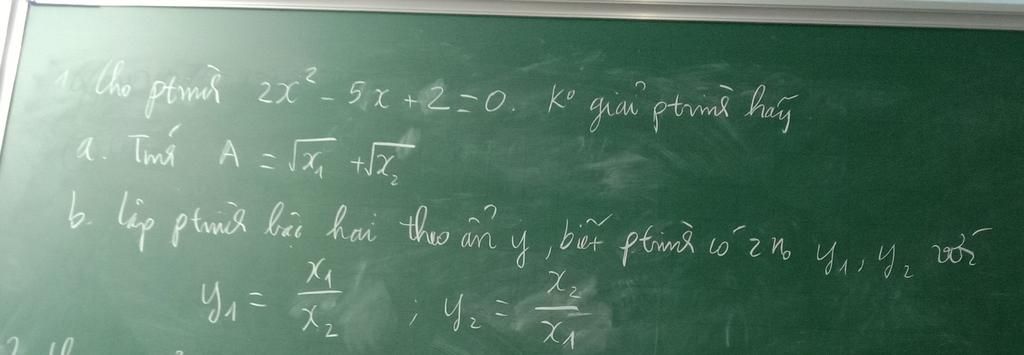 1. Cho ptrình 2x² - 5x + 2 = 0. Kº giải ptrình hãy
a. Tính A = √x₁ + √x₂
b. Lập ptrình bậc hai theo ẩn y, biết ptrình có 2 no y₁, y₂ với
y₁ = x₁/x₂ ; y₂ = x₂/x₁